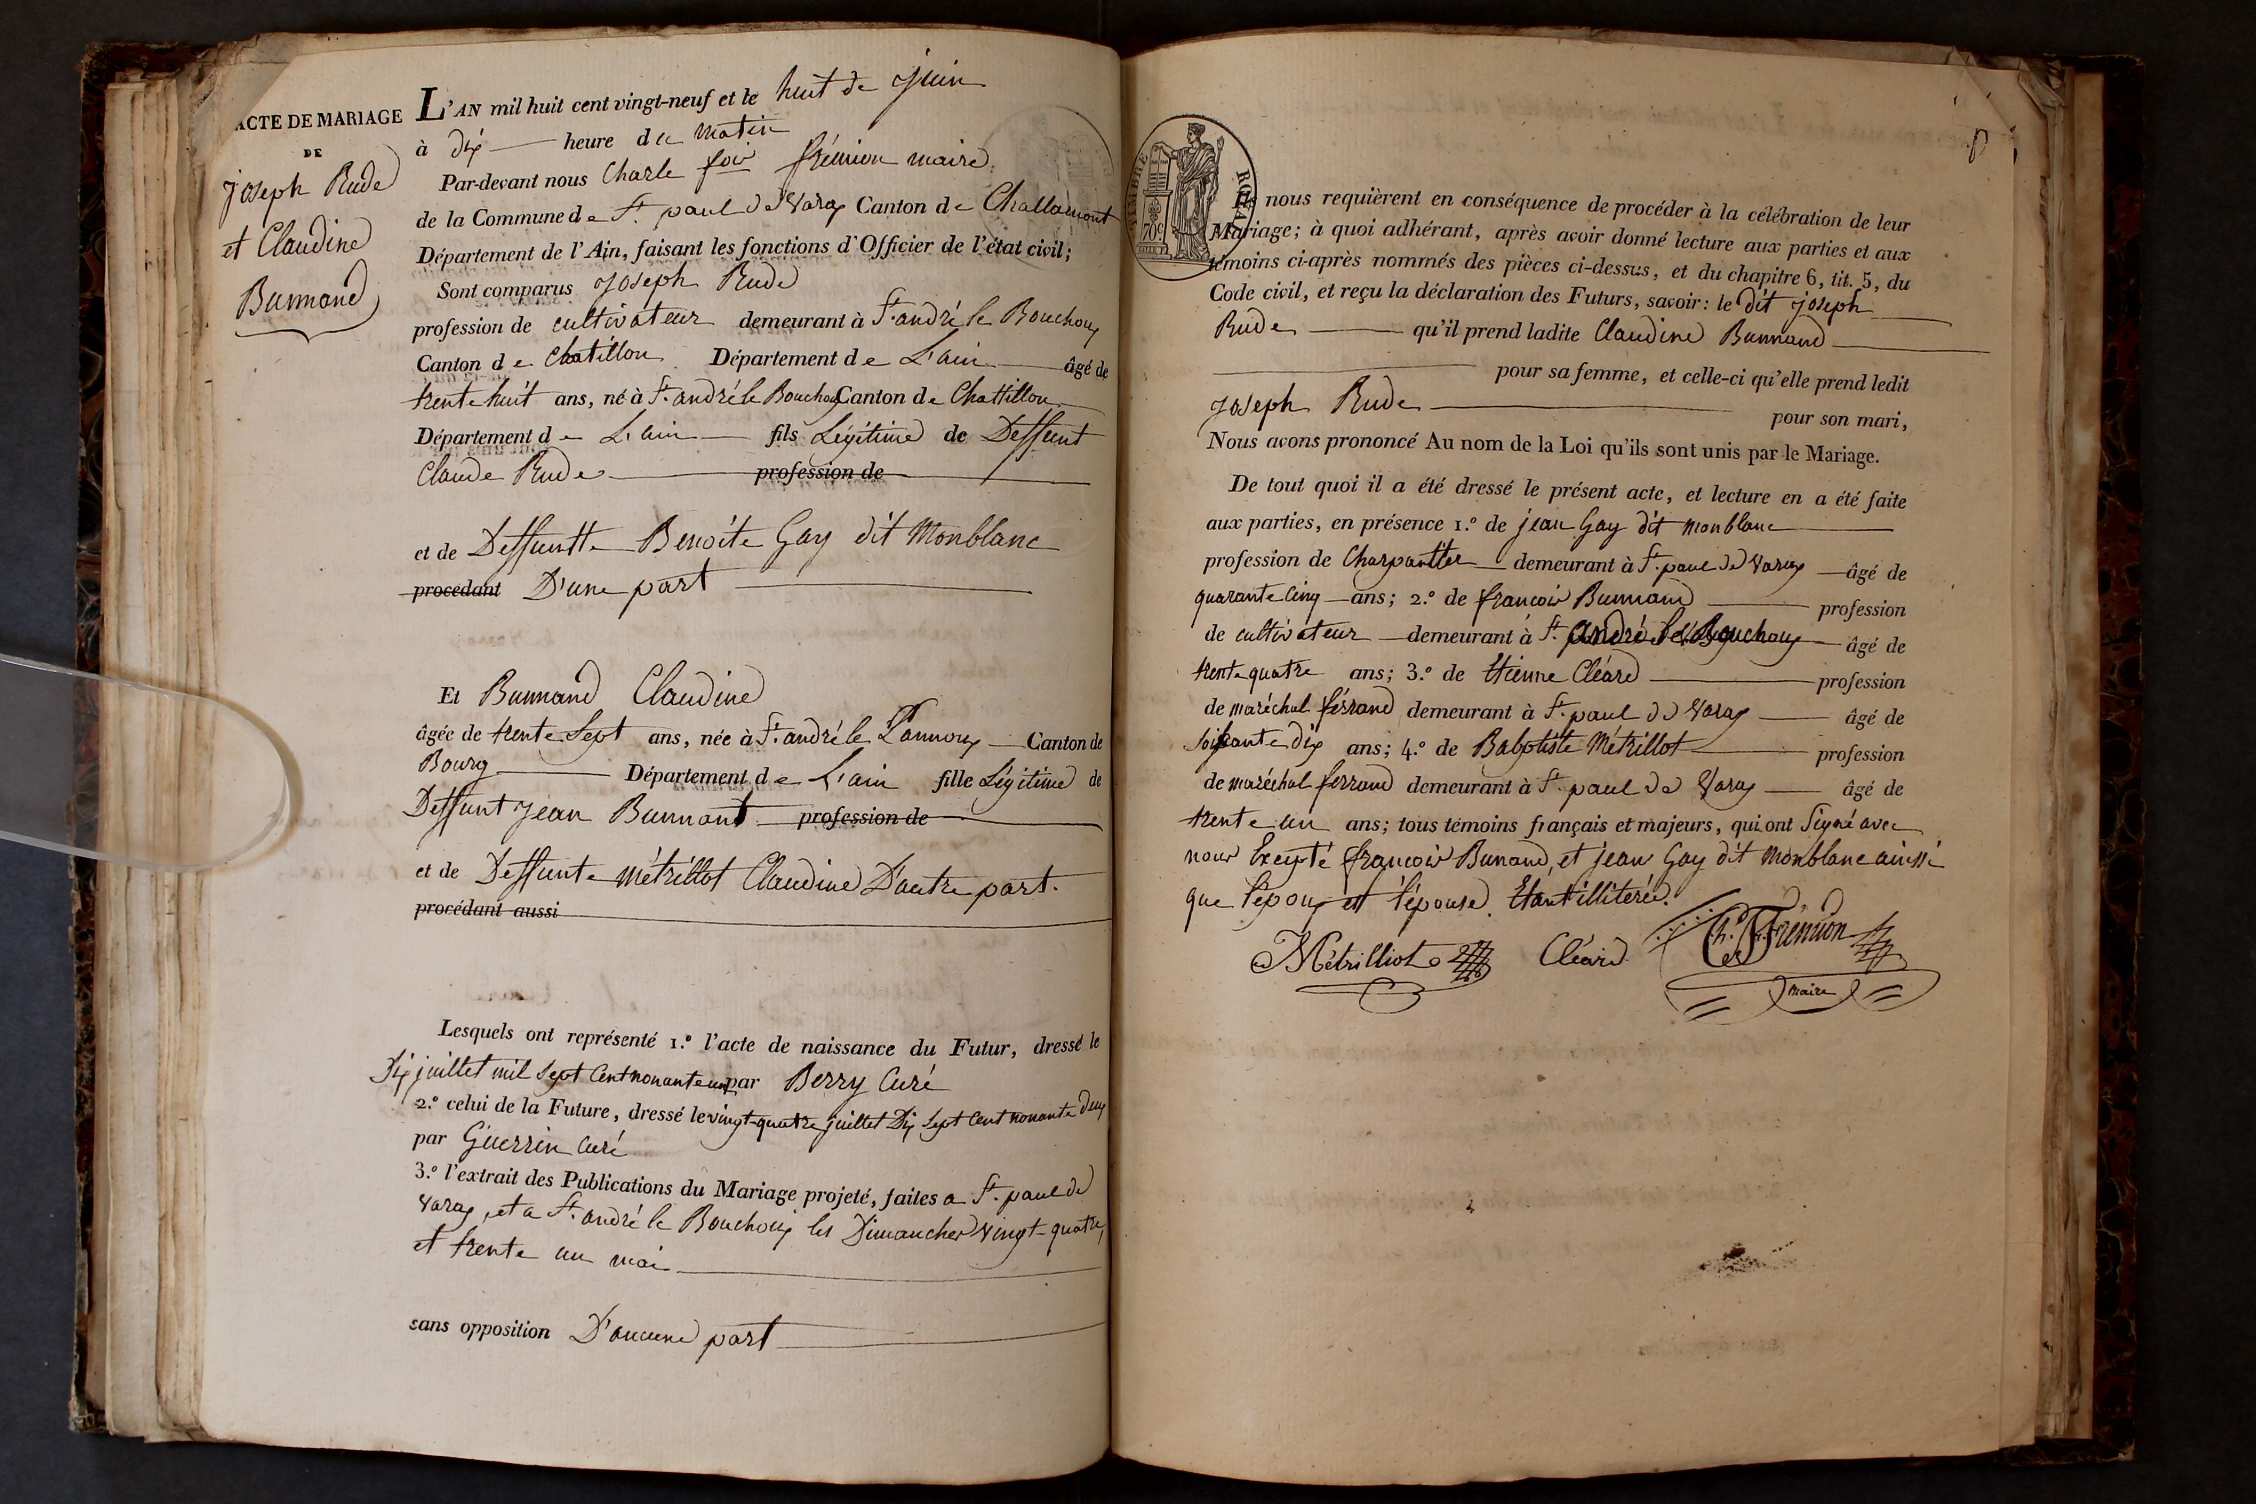 ACTE DE MARIAGE
DE
Joseph Rude
et Claudine
Bunnand
L'AN mil huit cent vingt-neuf et le huit de juin
à dix heure du matin
Par-devant nous Charle fois frémion maire
de la Commune de St. paul de Varax Canton de Challamont
Département de l'Ain, faisant les fonctions d'Officier de l'état civil;
Sont comparus Joseph Rude
profession de cultivateur demeurant à St. andré le Bouchoux
Canton de Chatillon Département de L'ain âgé de
trente huit ans, né à St. andré le Bouchoux Canton de Chattillon
Département de L'ain fils Légitime de Deffunt
Claude Rude profession de
et de Deffuntte Benoite Gay dit Monblanc
procédant D'une part
Et Bunnand Claudine
âgée de trente Sept ans, née à St. andré le Pannoux Canton de
Bourg Département de L'ain fille Légitime de
Deffunt jean Bunnant profession de
et de Deffunte Métrillot Claudine D'autre part.
procédant aussi
Lesquels ont représenté 1.º l'acte de naissance du Futur, dressé le
Dix juillet mil Sept Cent nonante un par Berry Curé
2.º celui de la Future, dressé le vingt-quatre juillet Dix Sept Cent nonante Deux
par Guerrin Curé
3.º l'extrait des Publications du Mariage projeté, faites a St. paul de
Varax, et a St. andré le Bouchoux les Dimanches Vingt-quatre,
et trente un mai
sans opposition D'aucune part
TIMBRE ROYAL
70 c.
Et nous requièrent en conséquence de procéder à la célébration de leur
Mariage; à quoi adhérant, après avoir donné lecture aux parties et aux
témoins ci-après nommés des pièces ci-dessus, et du chapitre 6, tit. 5, du
Code civil, et reçu la déclaration des Futurs, savoir: le dit joseph
Rude qu'il prend ladite Claudine Bunnand
pour sa femme, et celle-ci qu'elle prend ledit
Joseph Rude
pour son mari,
Nous avons prononcé Au nom de la Loi qu'ils sont unis par le Mariage.
De tout quoi il a été dressé le présent acte, et lecture en a été faite
aux parties, en présence 1.º de jean Gay dit monblanc
profession de Charpantier demeurant à St. paul de Varax âgé de
quarante Cinq ans; 2.º de francois Bunnand profession
de cultivateur demeurant à St. andré le Bouchoux âgé de
trente quatre ans; 3.º de Etienne Cléard profession
de maréchal ferrand demeurant à St. paul de Varax âgé de
soixante dix ans; 4.º de Babptiste Métrillot profession
de maréchal ferrand demeurant à St. paul de Varax âgé de
trente un ans; tous témoins français et majeurs, qui ont Signé avec
nous Excepté francois Bunand, et jean Gay dit Monblanc ainssi
que l'epoux et l'épouse Etant illiterée.
Métrilliot Cléard Ch. Fr. Frémion
maire